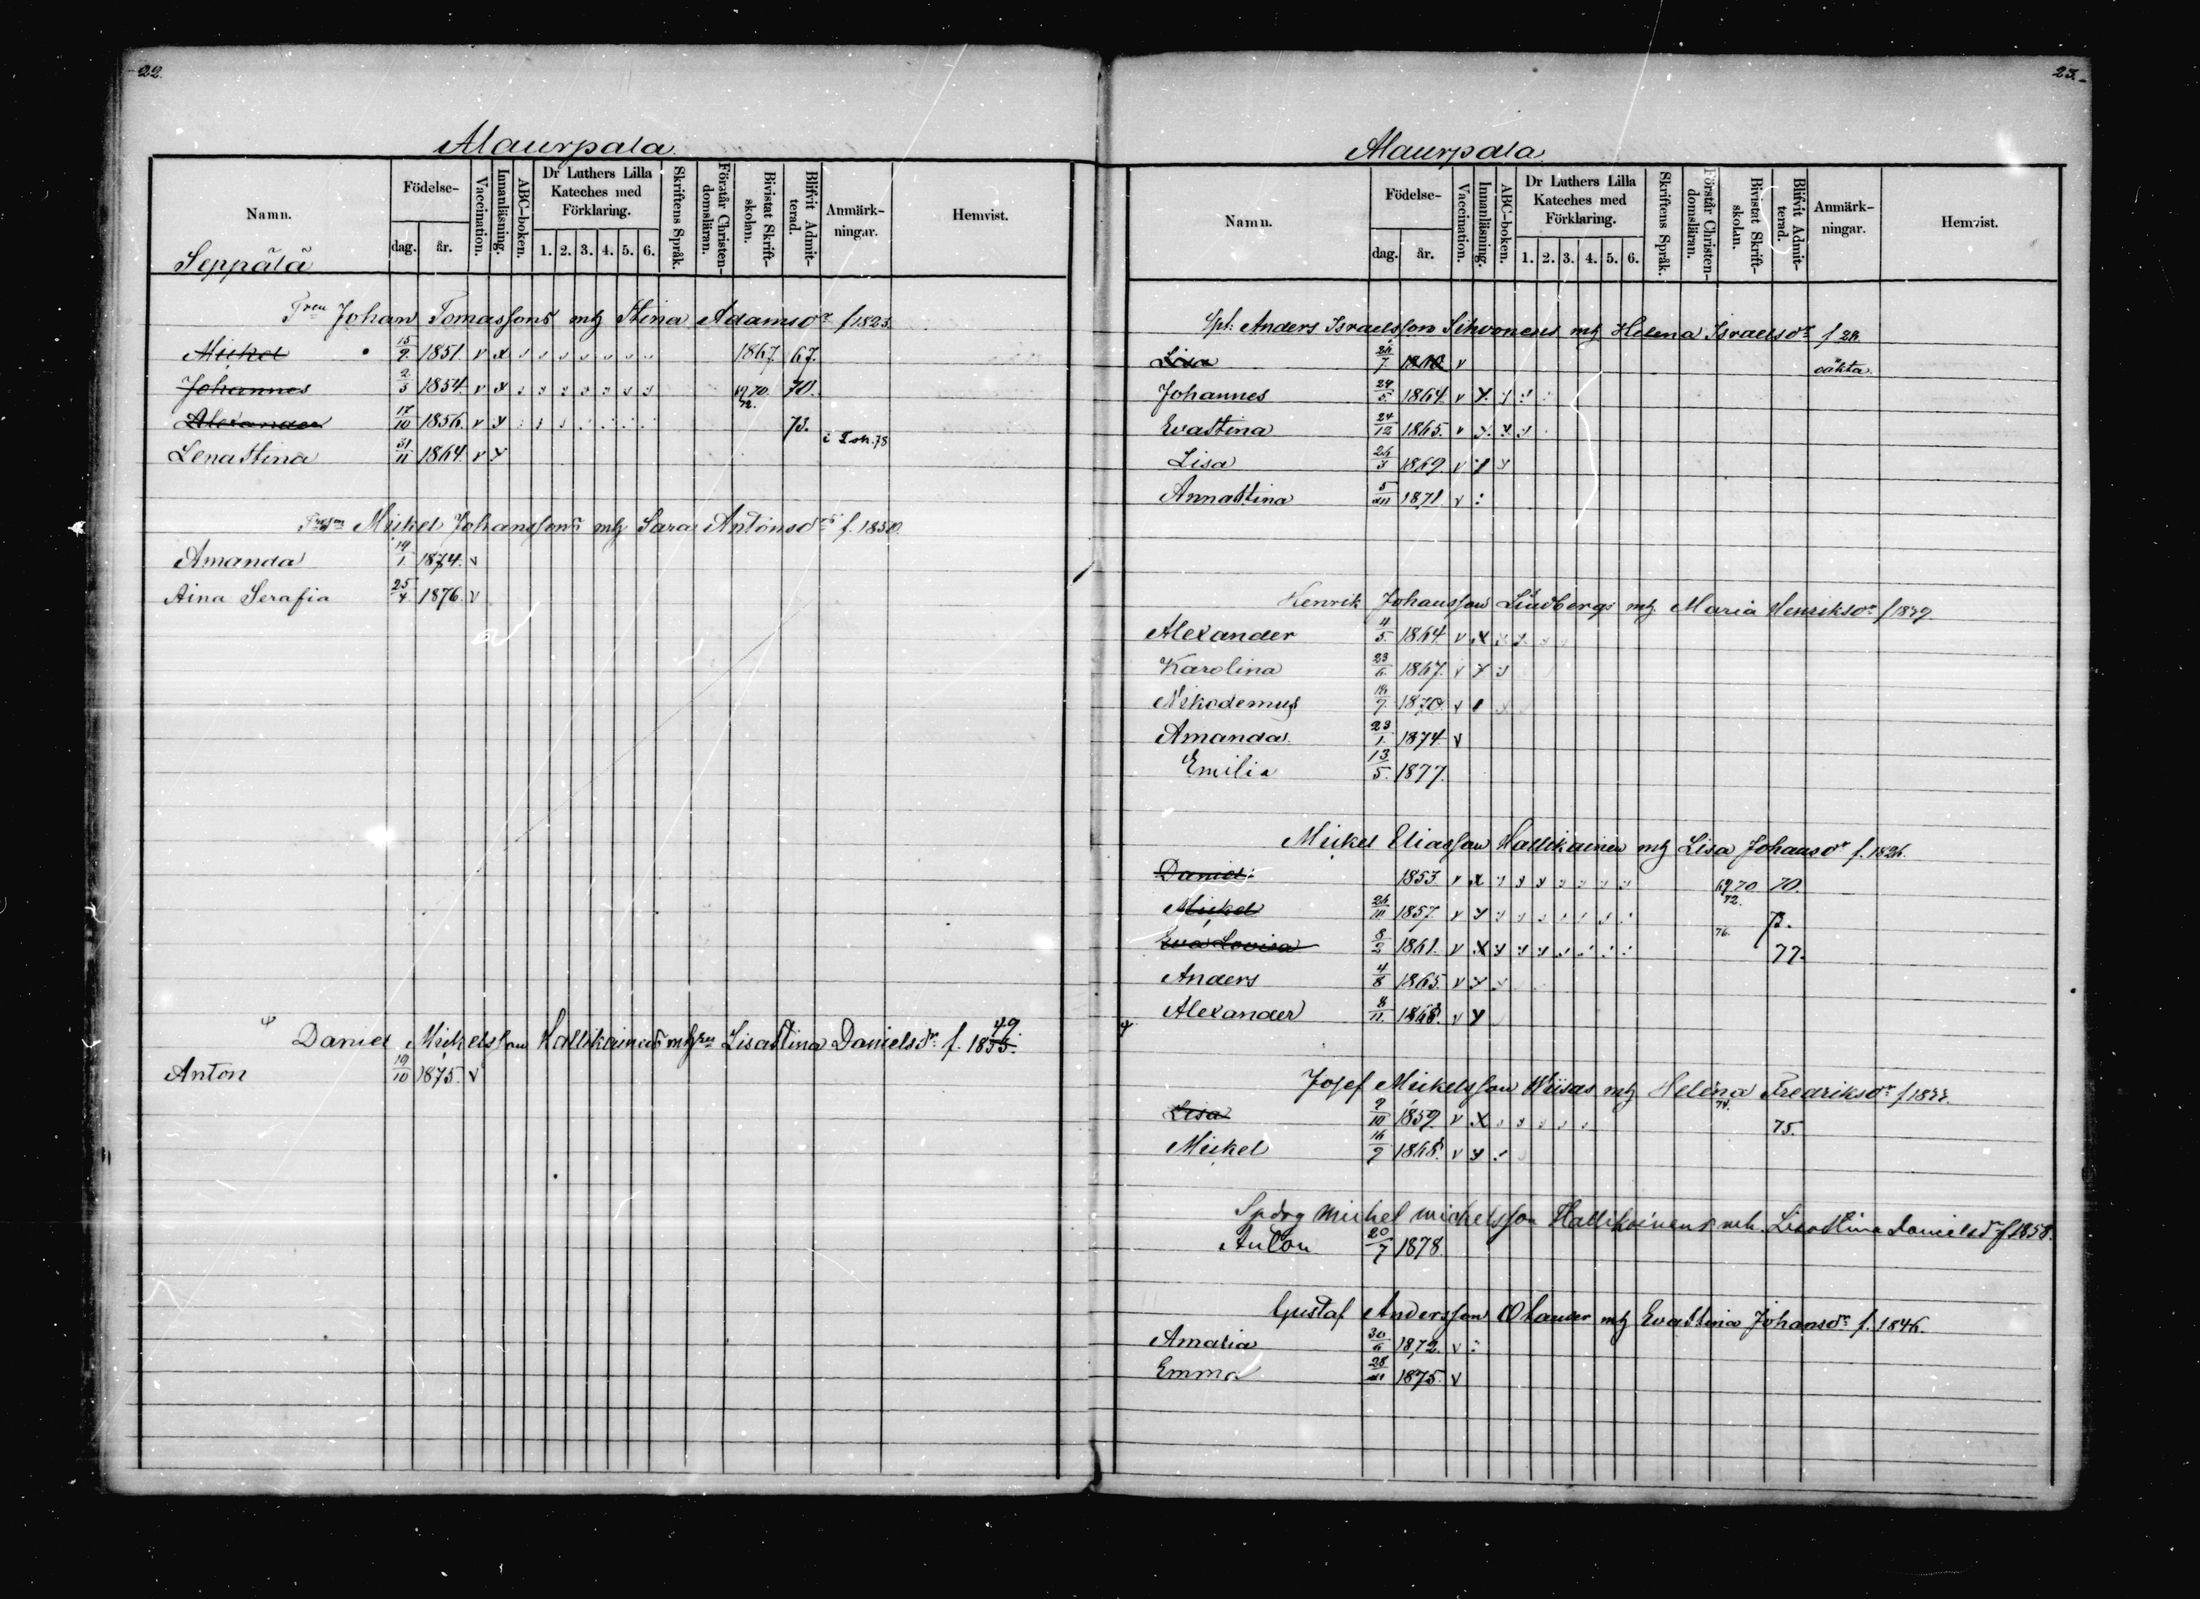 22.
Alaurpala
Namn.
Födelse-
dag.
år.
Vaccination.
Innanläsning.
ABC-boken.
Dr Luthers Lilla Kateches med Förklaring.
1. 2. 3. 4. 5. 6.
Skriftens Språk.
Förstår Christen-domsläran.
Bivistat Skrift-skolan.
Blifvit Admit-terad.
Anmärk-ningar.
Hemvist.
Seppälä
Johan Tomassons mhg Stina Adamsdr f 1823.
Mickel 15/9 1851. v x 1867. 67.
Johannes 2/3 1854. v x 69 70 72. 70.
Alexander 17/10 1856. v x 73.
Lenastina 31/11 1864. v x
Mickel Johanssons mhg Sara Antonsdr f. 1850.
Amanda 19/1. 1874. v
Aina Serafia 25/4. 1876. v
Daniel Mickelsson Hallikainens Lisastina Danielsdr. f. 1855. 49.
Anton 19/10 1875. v
23.
Alaurpala
Namn.
Födelse-
dag.
år.
Vaccination.
Innanläsning.
ABC-boken.
Dr Luthers Lilla Kateches med Förklaring.
1. 2. 3. 4. 5. 6.
Skriftens Språk.
Förstår Christen-domsläran.
Bivistat Skrift-skolan.
Blifvit Admit-terad.
Anmärk-ningar.
Hemvist.
Anders Israelsson Sihvonens mhg Helena Israelsdr f 28.
Lisa v oäkta.
Johannes 29/5 1864. v x
Evastina 24/12 1865. v
Lisa 1869. v
Annastina 1871. v
Henrik Johansson Lindbergs mhg Maria Henriksdr f 1839.
Alexander 4/5. 1864. v x
Karolina 23/6. 1867. v
Nikodemus 1870. v
Amanda. 23/1. 1874. v
Emilia 13/5. 1877.
Mickel Eliasson Hallikainen mhg Lisa Johansdr f. 1826.
Daniel 1853. v x 69 70 72. 70.
Mickel 1857. v 73.
Eva Lovisa 8/2 1861. v x 76. 77.
Anders 4/8 1865. v
Alexander 8/11. 1868. v
Josef Mickelsson Wiisas mhg Helena Fredriksdr
Lisa 9/10 1859. v x 74. 75.
Mickel 16/9 1868. v
Mickel Mickelsson Hallikainens Lisastina Danielsdr f 1858.
Anton 20/7 1878.
Gustaf Andersson mhg Evastina Johansdr f. 1846.
Amalia 30/6 1872. v
Emma 1875. v